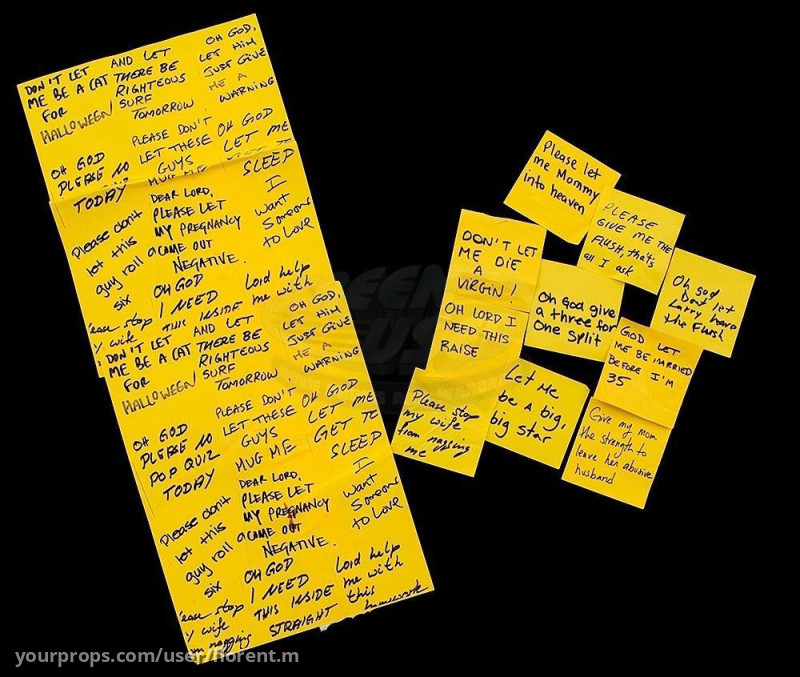 DON'T LET
ME BE A CAT
FOR
HALLOWEEN
AND LET
THERE BE
RIGHTEOUS
SURF
TOMORROW
OH GOD,
LET HIM
JUST GIVE
ME A
WARNING
OH GOD
PLEASE NO
TODAY
PLEASE DON'T
LET THESE
GUYS
MUG ME
OH GOD
LET ME
SLEEP
Please don't
let this
guy roll a
six
DEAR LORD,
PLEASE LET
MY PREGNANCY
COME OUT
NEGATIVE.
I
want
Someone
to Love
stop
wife
OH GOD
I NEED
THIS INSIDE
Lord help
me with
DON'T LET
ME BE A CAT
FOR
HALLOWEEN
AND LET
THERE BE
RIGHTEOUS
SURF
TOMORROW
OH GOD,
LET HIM
JUST GIVE
ME A
WARNING
OH GOD
PLEASE NO
POP QUIZ
TODAY
PLEASE DON'T
LET THESE
GUYS
MUG ME
OH GOD
LET ME
GET TO
SLEEP
Please don't
let this
guy roll a
six
DEAR LORD,
PLEASE LET
MY PREGNANCY
COME OUT
NEGATIVE.
I
want
Someone
to Love
stop
wife
nagging
OH GOD
I NEED
THIS INSIDE
STRAIGHT
Lord help
me with
this
homework
Please let
me Mommy
into heaven
PLEASE
GIVE ME THE
FLUSH, that's
all I ask
DON'T LET
ME DIE
A
VIRGIN!
Oh God give
a three for
One Split
Oh god
Dont let
Larry have
the Flush
OH LORD I
NEED THIS
RAISE
GOD LET
ME BE MARRIED
BEFORE I'M
35
Please stop
my wife
from nagging
me
Let Me
be a big,
big star
Give my mom
the strength to
leave her abusive
husband
yourprops.com/user/florent.m